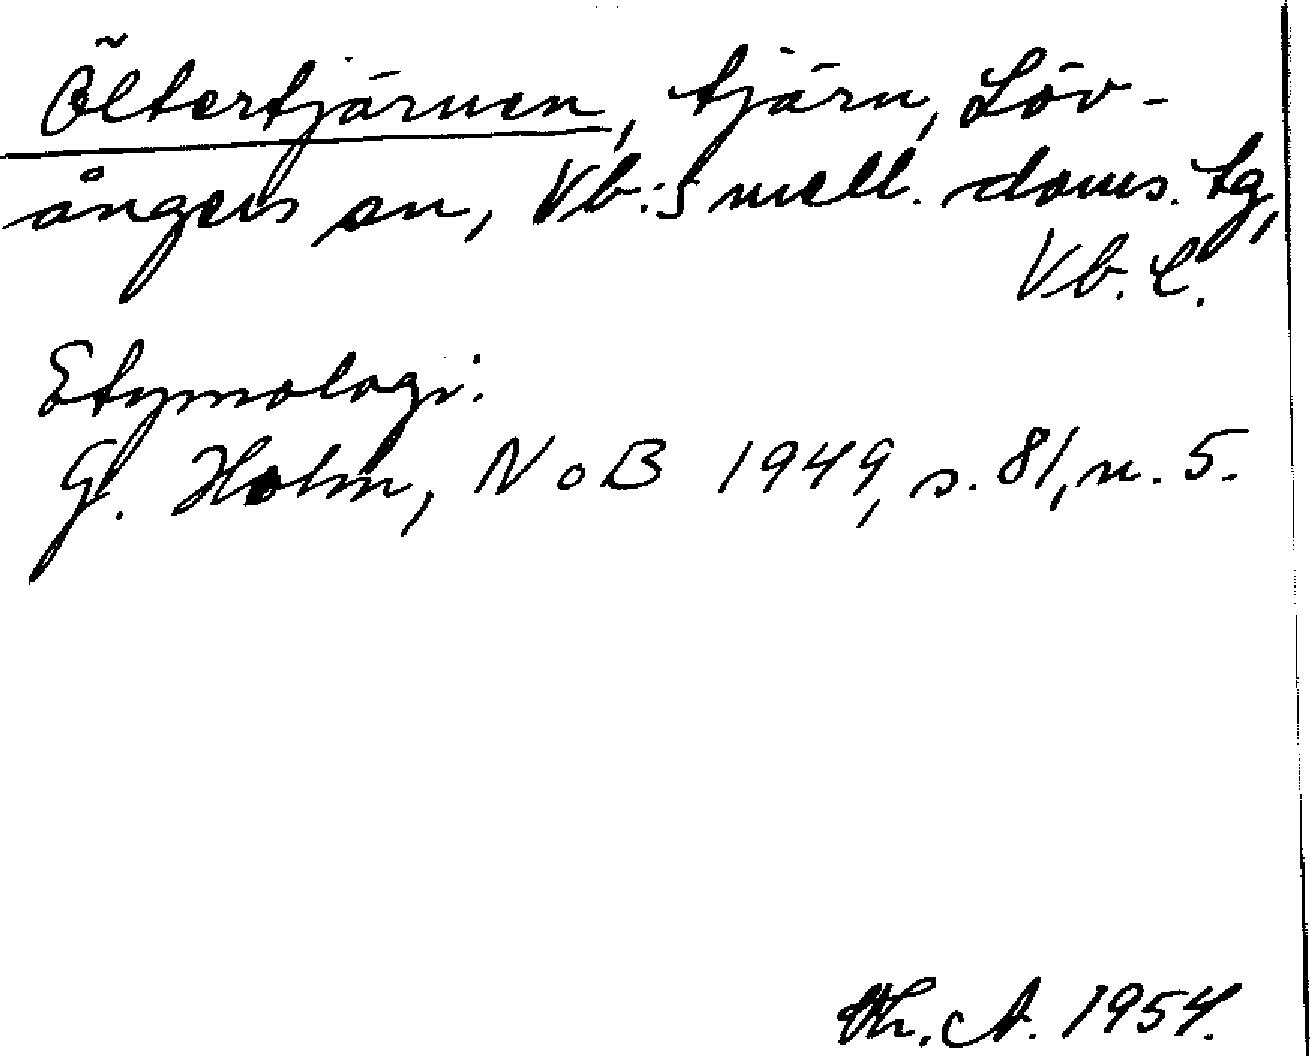 Öltertjärnen, tjärn, Löv-
ångers sn, Vb:s mell. doms. tg,
Vb. l.
Etymologi:
G. Holm, NoB 1949, s. 81, n. 5.
Th. A. 1954.